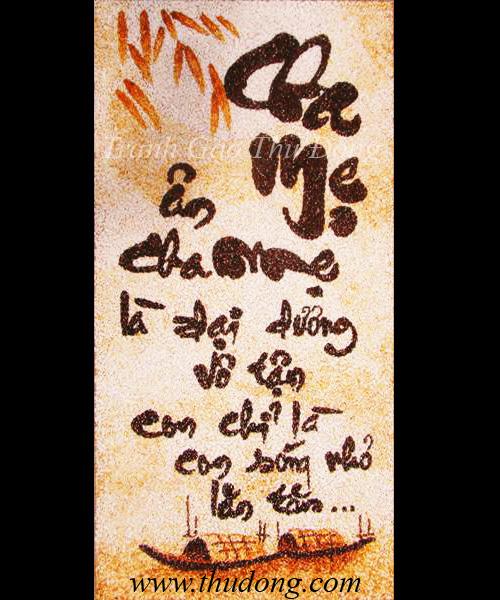 Cha
Mẹ
Tranh Gạo Thu Đông
ân
cha mẹ
là đại dương
vô tận
con chỉ là
con sóng nhỏ
lăn tăn...
www.thudong.com